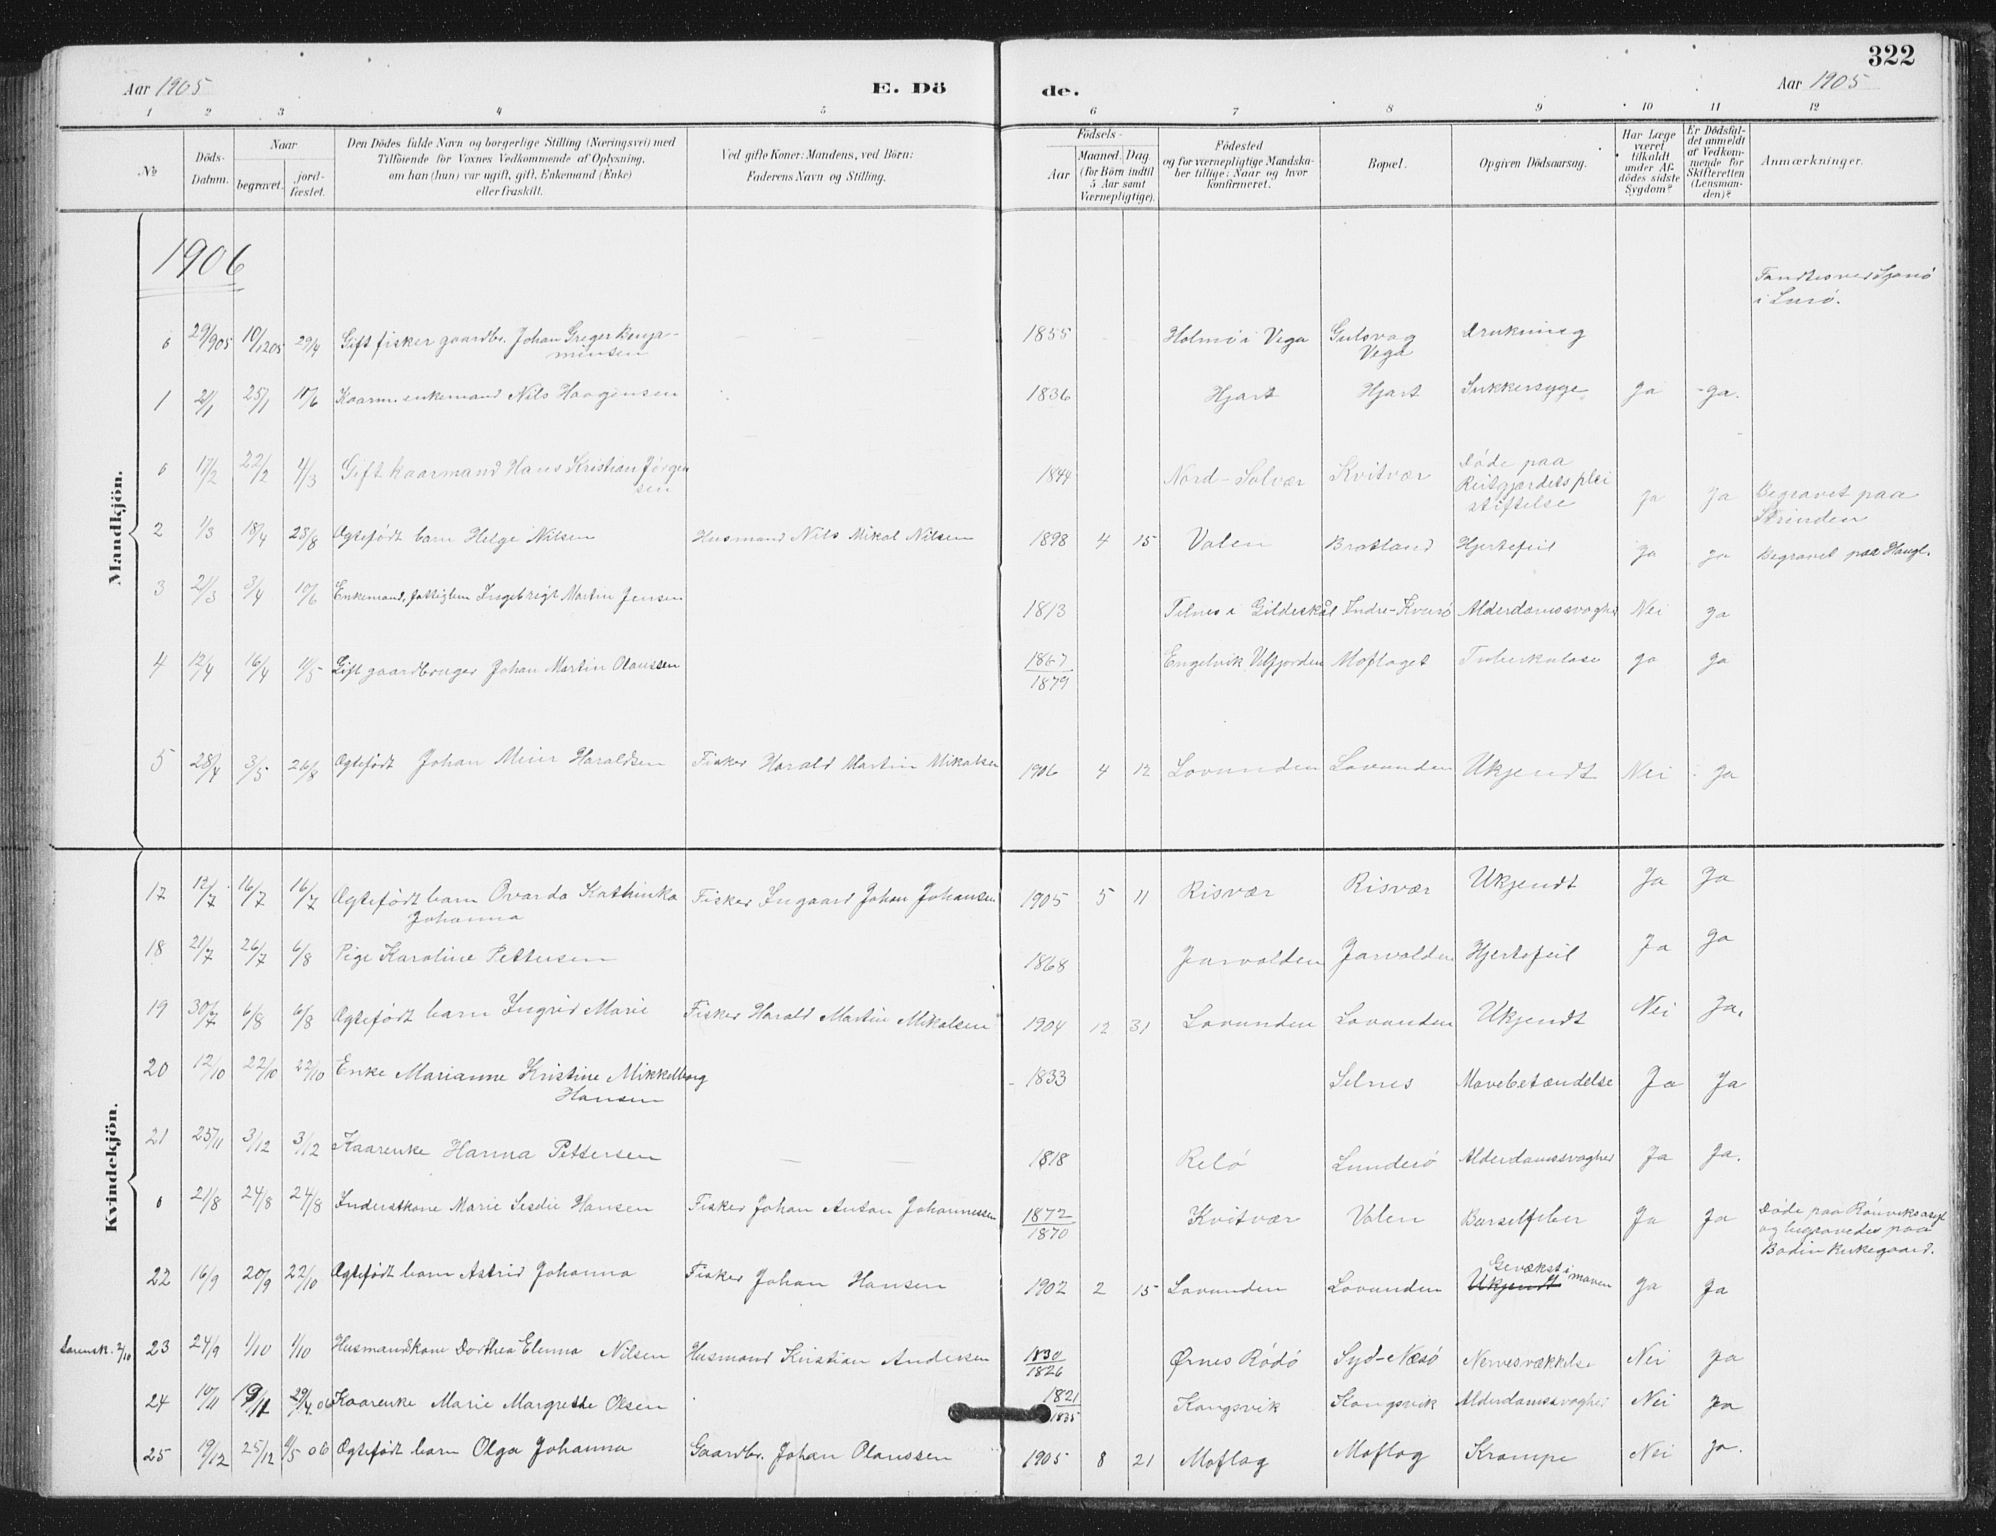 322
Aar 1905 E. Döde. Aar 1905
1 2 3 4 5 6 7 8 9 10 11 12
№
Döds-Datum.
Naar
begravet.
jordfæstet.
Den Dödes fulde Navn og borgerlige Stilling (Næringsvei) med
Tilföiende for Voxnes Vedkommende af Oplysning,
om han (hun) var ugift, gift, Enkemand (Enke)
eller fraskilt.
Ved gifte Koner: Mandens, ved Börn:
Faderens Navn og Stilling.
Födsels-
Aar
Maaned. Dag
(for Börn indtil
5 Aar samt
Værnepligtige).
Födested
og for værnepligtige Mandskaber tillige: Naar og hvor
konfirmeret.
Bopæl.
Opgiven Dödsaarsag.
Har Læge
været
tilkaldt
under Afdödes sidste
Sygdom?
Er Dödsfaldet anmeldt
af Vedkommende for
Skifteretten
(Lensmanden)?
Anmærkninger.
Mandkjön.
1906
i Lurö.
0 29/905 10/1205 29/4 Gift fisker gaardbr. Johan Greger Benjaminsen 1855 Holmö i Vega Gulsvag Vega Drukning
1 21/1 25/1 10/6 Kaarm. enkemand Nils Haagensen 1836 Hjart Hjart Sukkersyge Ja Ja.
0 17/2 22/2 4/3 Gift kaarmand Hans Kristian Jörgensen 1844 Nord-Solvær Kvitvær Döde paa Reitgjærdets pleistiftelse Ja Ja Begravet paa Strinden
2 1/3 18/4 23/8 Ægtefödt barn Helge Nilsen Husmand Nils Mikal Nilsen 1898 4 15 Valen Bratland Hjertefeil Ja Ja Begravet paa Haugl.
3 21/3 3/4 10/6 Enkemand, fattiglem Ingebrigt Martin Jensen 1813 Telnes i Gildeskål Indre-Kvarö Alderdomssvaghed Nei Ja
4 12/4 16/4 11/5 Gift gaardbruger Johan Martin Olaussen 1867/1879 Engelvik Ulfjorden Moflaget Tuberkulose Ja Ja
5 28/4 3/5 26/8 Ægtefödt Johan Meier Haraldsen Fisker Harald Martin Mikalsen 1906 4 12 Lovunden Lovunden Ukjendt Nei Ja
Kvindekjön.
17 12/7 16/7 16/7 Ægtefödt barn Ovarda Kathinka Johanna Fisker Ingaard Johan Johansen 1905 5 11 Risvær Risvær Ukjendt Ja Ja
18 21/7 26/7 6/8 Pige Karoline Pettersen 1868 Jarvolden Jarvolden Hjertefeil Ja Ja
19 30/7 6/8 6/8 Ægtefödt barn Ingrid Marie Fisker Harald Martin Mikalsen 1904 12 31 Lovunden Lovunden Ukjendt Nei Ja.
20 12/10 22/10 22/10 Enke Marianne Kristine Mikkelborg Hansen 1833 Selnes Mavebetændelse Ja Ja
21 25/11 3/12 3/12 Kaarenke Hanna Pettersen 1818 Relö Lunderö Alderdomssvaghed Ja Ja.
0 21/8 24/8 24/8 Inderstkone Marie Sesdie Hansen Fisker Johan Anton Johannessen 1872/1870 Kvitvær Valen Barselfeber Ja Ja Döde paa Rönviks asyl og begravedes paa Bodin kirkegaard.
22 16/9 20/9 22/10 Ægtefödt barn Astrid Johanna Fisker Johan Hansen 1902 2 15 Lovunden Lovunden Ukjendt Gevækst i maven Ja Ja
23 24/9 1/10 1/10 Husmandskone Dorthea Elenna Nilsen Husmand Kristian Andersen 1830/1826 Ørnes Rödö Syd-Næsö Nervesvækkelse Nei Ja
24 10/11 19/11 29/4 06 Kaarenke Marie Margrethe Olsen 1821/1835 Kongsvik Kongsvik Alderdomssvaghed Nei Ja
25 19/12 25/12 11/5 06 Ægtefödt barn Olga Johanna Gaardbr. Johan Olaussen 1905 8 21 Moflag Moflag Krampe Nei Ja.